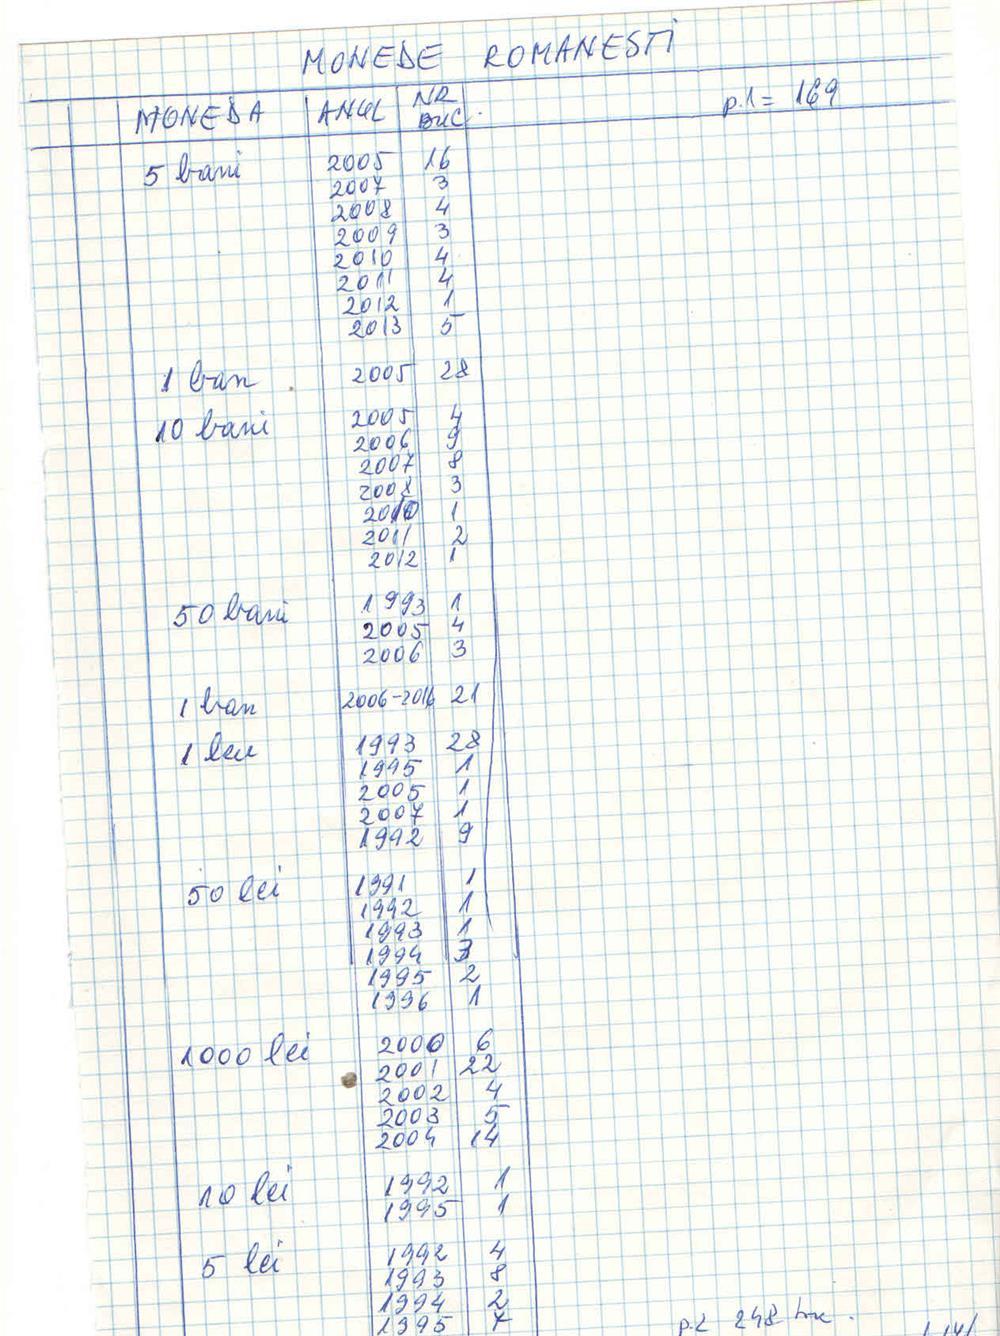 MONEDE ROMANESTI
MONEDA ANUL NR BUC.
p.1= 169
5 bani 2005 16
2007 3
2008 4
2009 3
2010 4
2011 4
2012 1
2013 5
1 ban 2005 28
10 bani 2005 4
2006 9
2007 8
2008 3
2010 1
2011 2
2012 1
50 bani 1993 1
2005 4
2006 3
1 ban 2006-2016 21
1 leu 1993 28
1995 1
2005 1
2007 1
1992 9
50 lei 1991 1
1992 1
1993 1
1994 3
1995 2
1996 1
1000 lei 2000 6
2001 22
2002 4
2003 5
2004 14
10 lei 1992 1
1995 1
5 lei 1992 4
1993 8
1994 2
1995 7
p.2 248 buc.